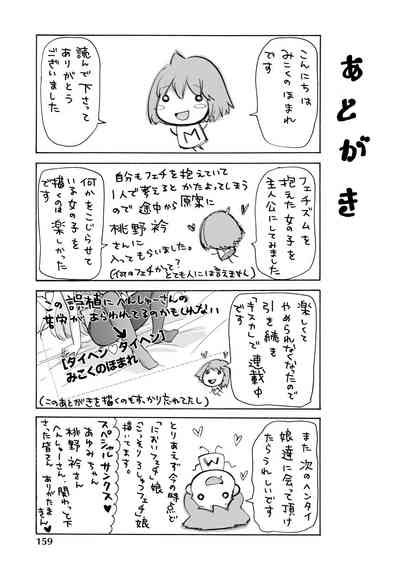 あとがき
こんにちは
みこくのほまれ
です
読んで下さって
ありがとう
ございました
M
フェチズムを
抱えた女の子を
主人公にしてみました
自分もフェチを抱えていて
1人で考えるとかたよってしまう
ので途中から原案に
桃野衿
さんに
入ってもらいました。
(何のフェチかって?
とても人には言えません)
何かをこじらせて
いる女の子を
描くのは楽しかった
です
楽しくて
やめられなくなったので
引き続き
「キスカ」で連載中
です
この誤植にへんしゅーさんの
苦労があらわれてるのかもしれない
【ダイヘン♡ダイヘン】
みこくのほまれ
(このあとがきを描くのもすっかり忘れてたし)
また次のヘンタイ
娘達に会って頂け
たらうれしいです
M
とりあえず今の時点で
「においフェチ」娘
「こっそりろしゅつフェチ」娘
描いてます。
スペシャルサンクス♥
あゆみちゃん
桃野衿さん
へんしゅーさん・関わって下
さった皆さんありがたきん♥
159